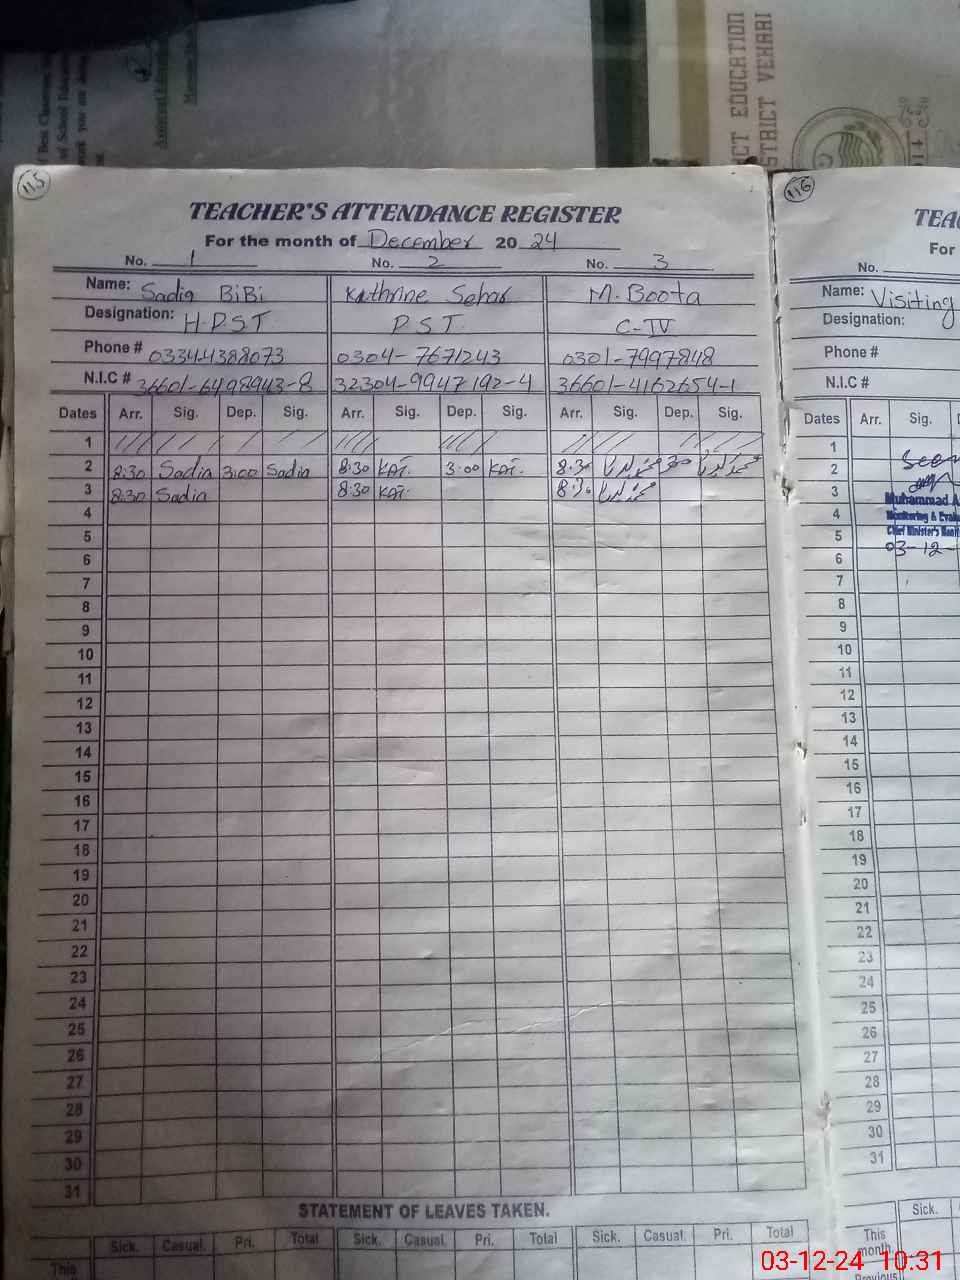 CT EDUCATION
STRICT VEHARI
115
TEACHER'S ATTENDANCE REGISTER
For the month of December 2024
No. 1 No. 2 No. 3
Name: Sadia BiBi Kathrine Sehar M. Boota
Designation: H.P.S.T P.S.T. C-IV
Phone # 0334-4388073 0304-7671243 0301-7997848
N.I.C # 36601-6498943-8 32304-9947192-4 36601-4162654-1
Dates Arr. Sig. Dep. Sig. Arr. Sig. Dep. Sig. Arr. Sig. Dep. Sig.
1
2 8:30 Sadia 3:00 Sadia 8:30 KAT. 3:00 KAT. 8:30
3 8:30 Sadia 8:30 KAT. 8:30
4
5
6
7
8
9
10
11
12
13
14
15
16
17
18
19
20
21
22
23
24
25
26
27
28
29
30
31
STATEMENT OF LEAVES TAKEN.
Sick. Casual. Pri. Total Sick. Casual. Pri. Total Sick. Casual. Pri. Total
This
116
TEAC
For
No.
Name: Visiting
Designation:
Phone #
N.I.C #
Dates Arr. Sig.
1
2 Seen
3
Muhammad A
4 Monitoring & Evalu
5 Chief Minister's Moni
6 03-12-
7
8
9
10
11
12
13
14
15
16
17
18
19
20
21
22
23
24
25
26
27
28
29
30
31
Sick.
This
month
Previous
03-12-24 10:31